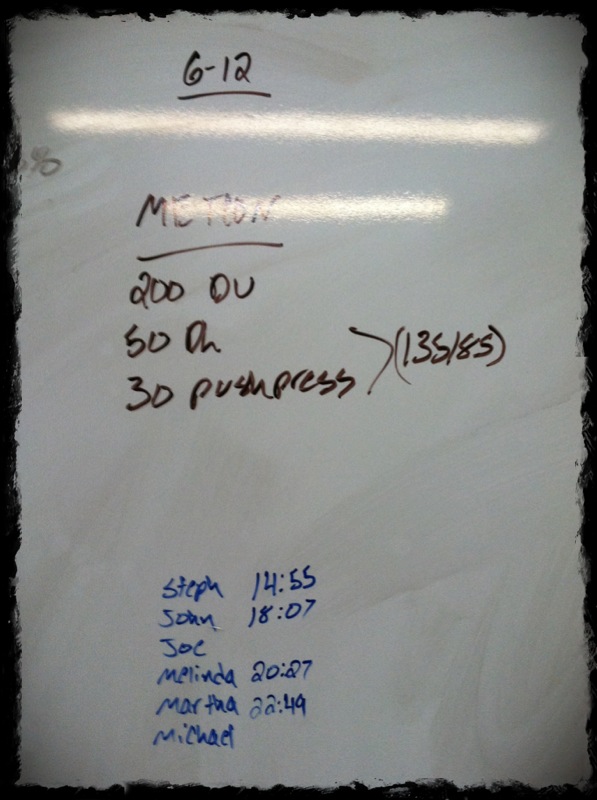 6-12
%
METCON
200 DU
50 DL
30 pushpress (135/85)
Steph 14:55
John 18:07
Joe
Melinda 20:27
Martha 22:49
Michael